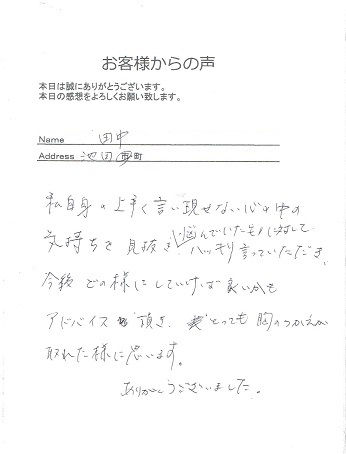 お客様からの声
本日は誠にありがとうございます。
本日の感想をよろしくお願い致します。
Name 田中
Address 池田町
私自身の上手く言い現せない心の中の
気持ちを見抜き、悩んでいたものに対して
ハッキリ言っていただき、
今後どの様にしていけば良いかも
アドバイス頂き、とっても胸のつかえが
取れた様に思います。
ありがとうございました。